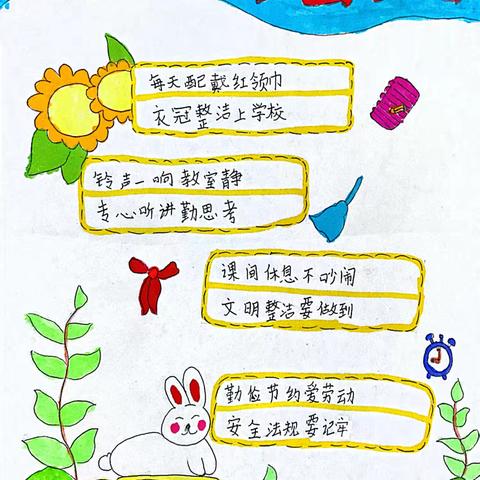 每天配戴红领巾
衣冠整洁上学校
铃声一响教室静
专心听讲勤思考
课间休息不吵闹
文明整洁要做到
勤俭节约爱劳动
安全法规要记牢